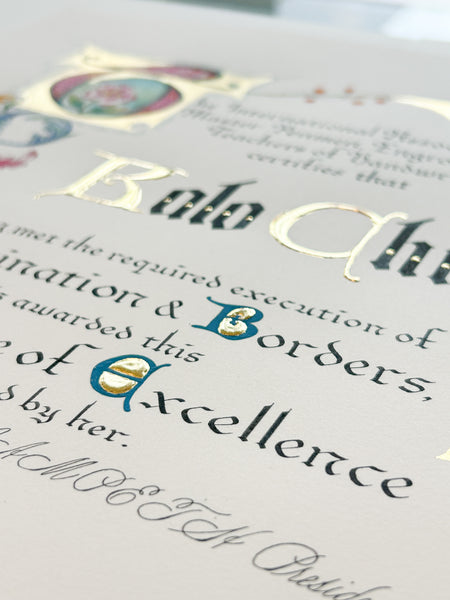 International
Master Penmen, Engro
Teachers of Handwr
certifies that
Rolo Chi
met the required execution of
ination & Borders,
awarded this
of Excellence
by her.
IAMPETH Presid